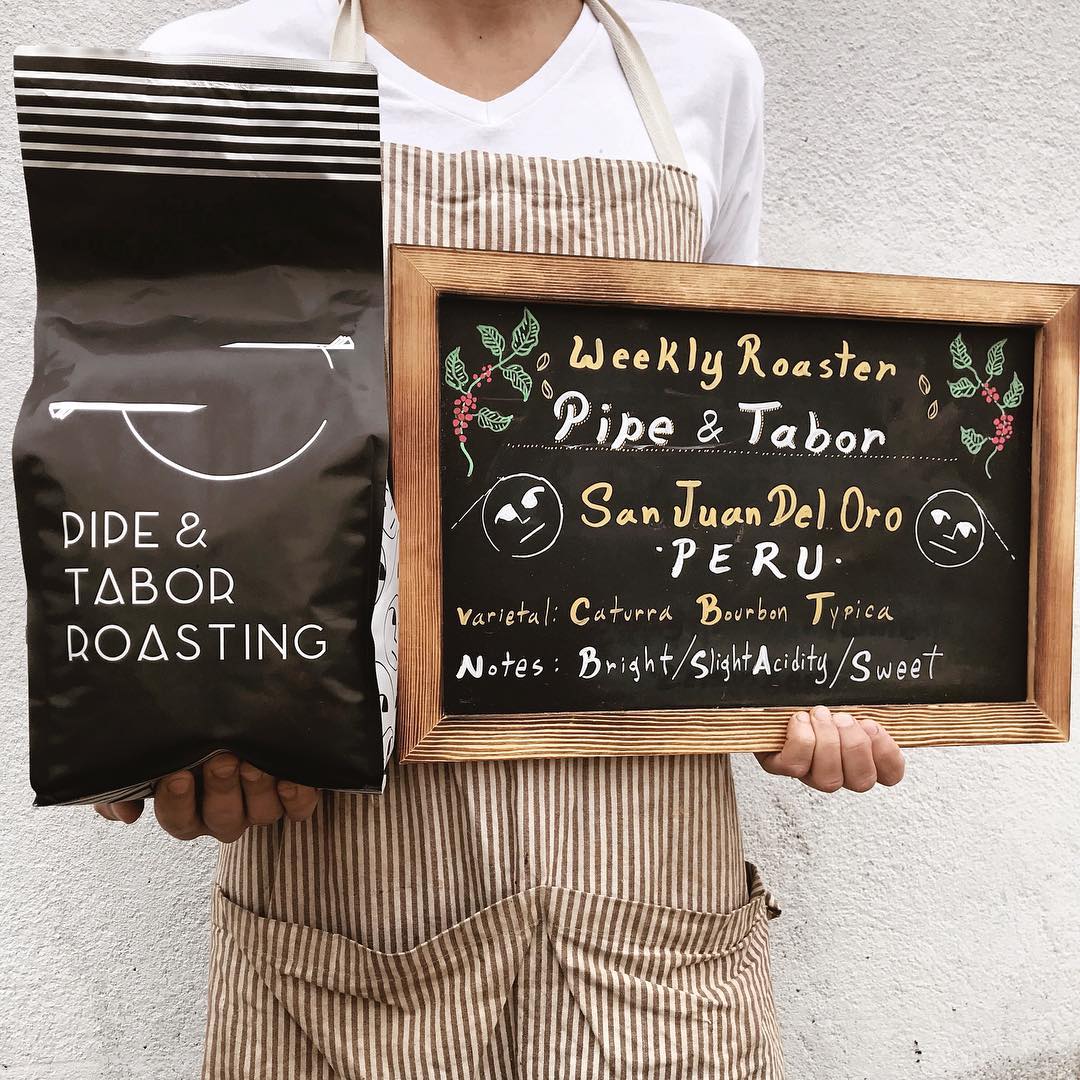 PIPE &
TABOR
ROASTING
Weekly Roaster
Pipe & Tabor
San Juan Del Oro
·PERU·
Varietal: Caturra Bourbon Typica
Notes: Bright/Slight Acidity/Sweet